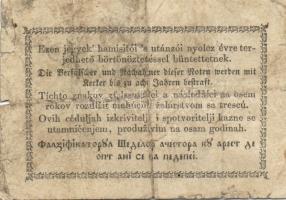 Ezen jegyek' hamisítói 's utánzói nyolcz évre ter-
jedhető börtönöztetéssel büntettetnek.
Die Verfälscher und Nachahmer dieser Noten werden mit
Kerker bis zu acht Jahren bestraft.
Tichto znakov zfalšovatelé a následáci na osem
rokov rozsiahlim väzením sa trescú.
Ovih céduljah izkrivitelji i spotvoritelji kazne se
utamničenjem, produživim na osam godinah.
Фалзіфікаторул Шеділор ачестора ку арест де
опт ані се ва педепсі.